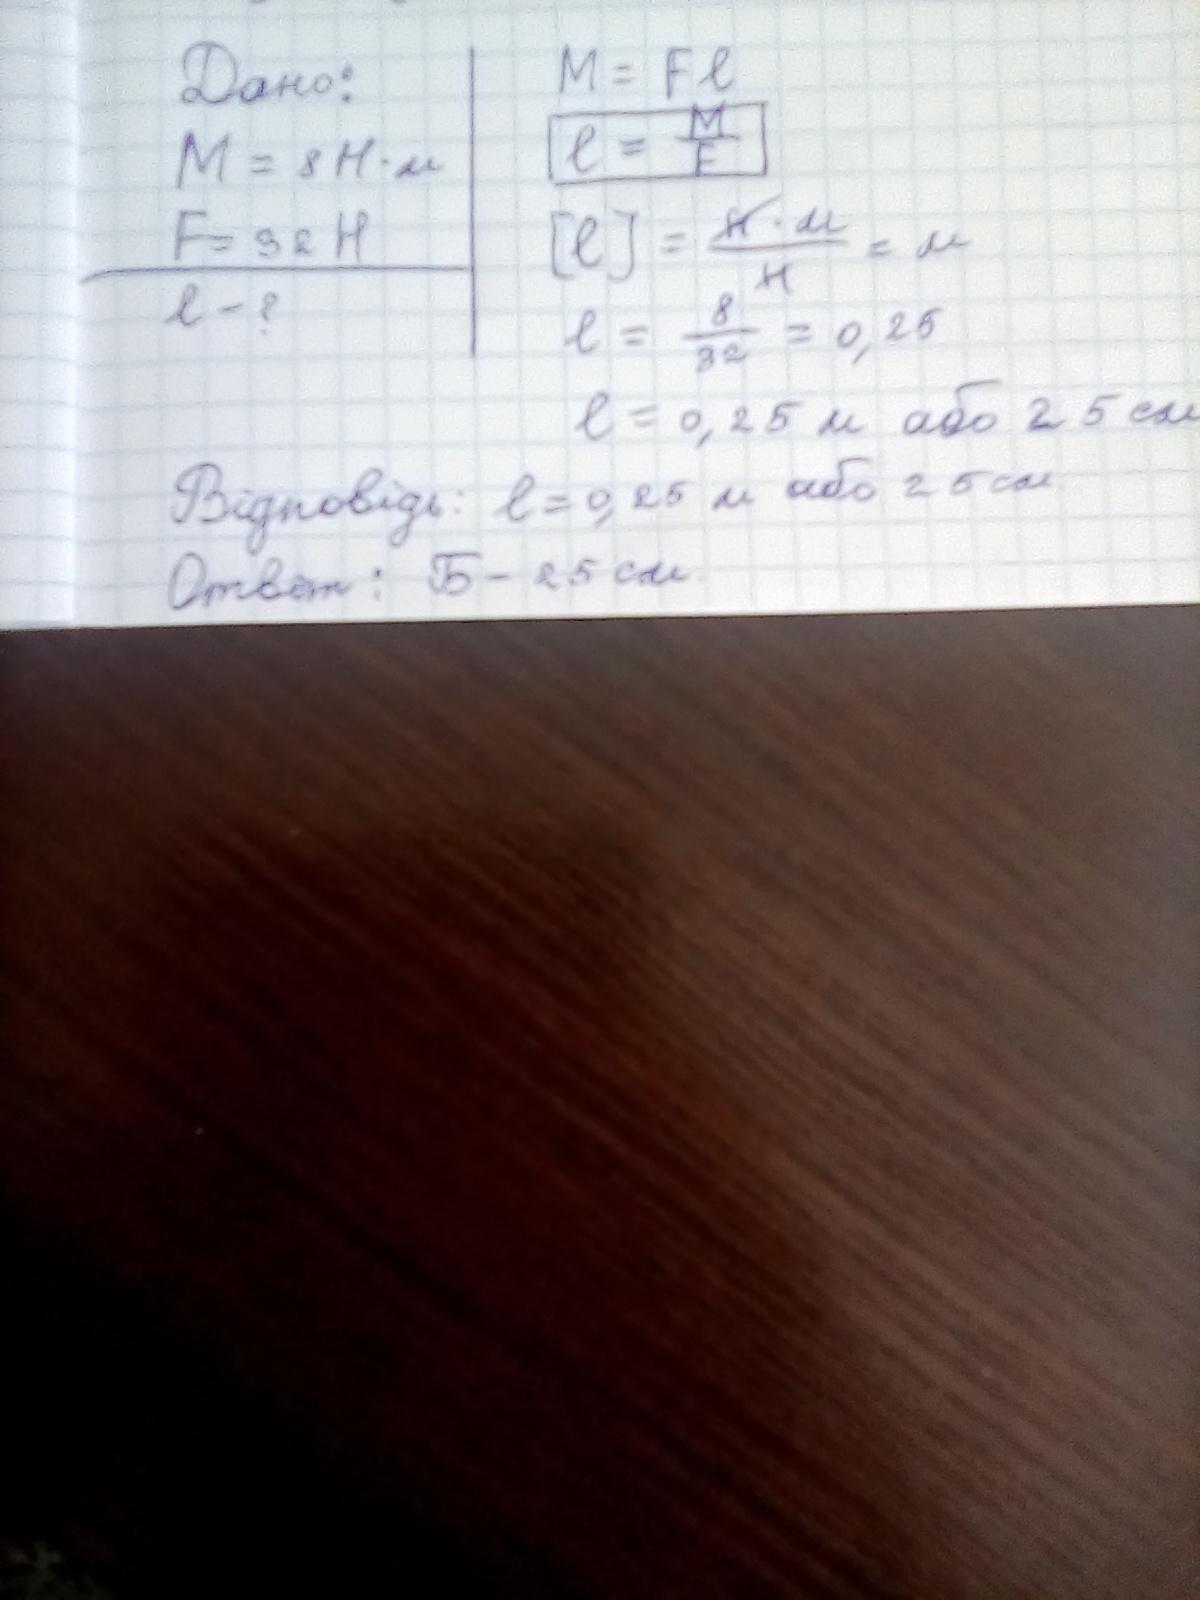 Дано:
M = 8 Н·м
F = 32 Н
l - ?
M = Fl
l = M/F
[l] = Н·м/Н = м
l = 8/32 = 0,25
l = 0,25 м або 25 см
Відповідь: l = 0,25 м або 25 см
Ответ: Б - 25 см.